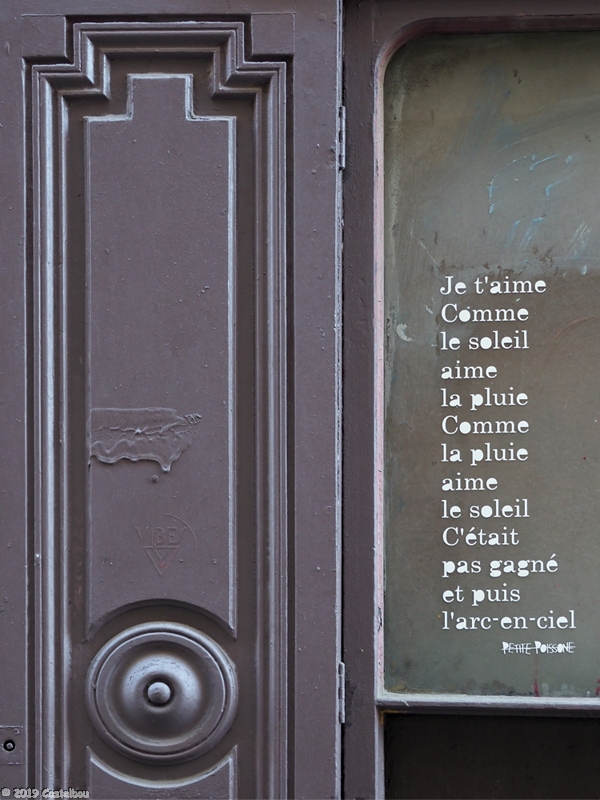 Je t'aime
Comme
le soleil
aime
la pluie
Comme
la pluie
aime
le soleil
C'était
pas gagné
et puis
l'arc-en-ciel
PETITE POISSONE
VIBE
© 2019 Castelbou